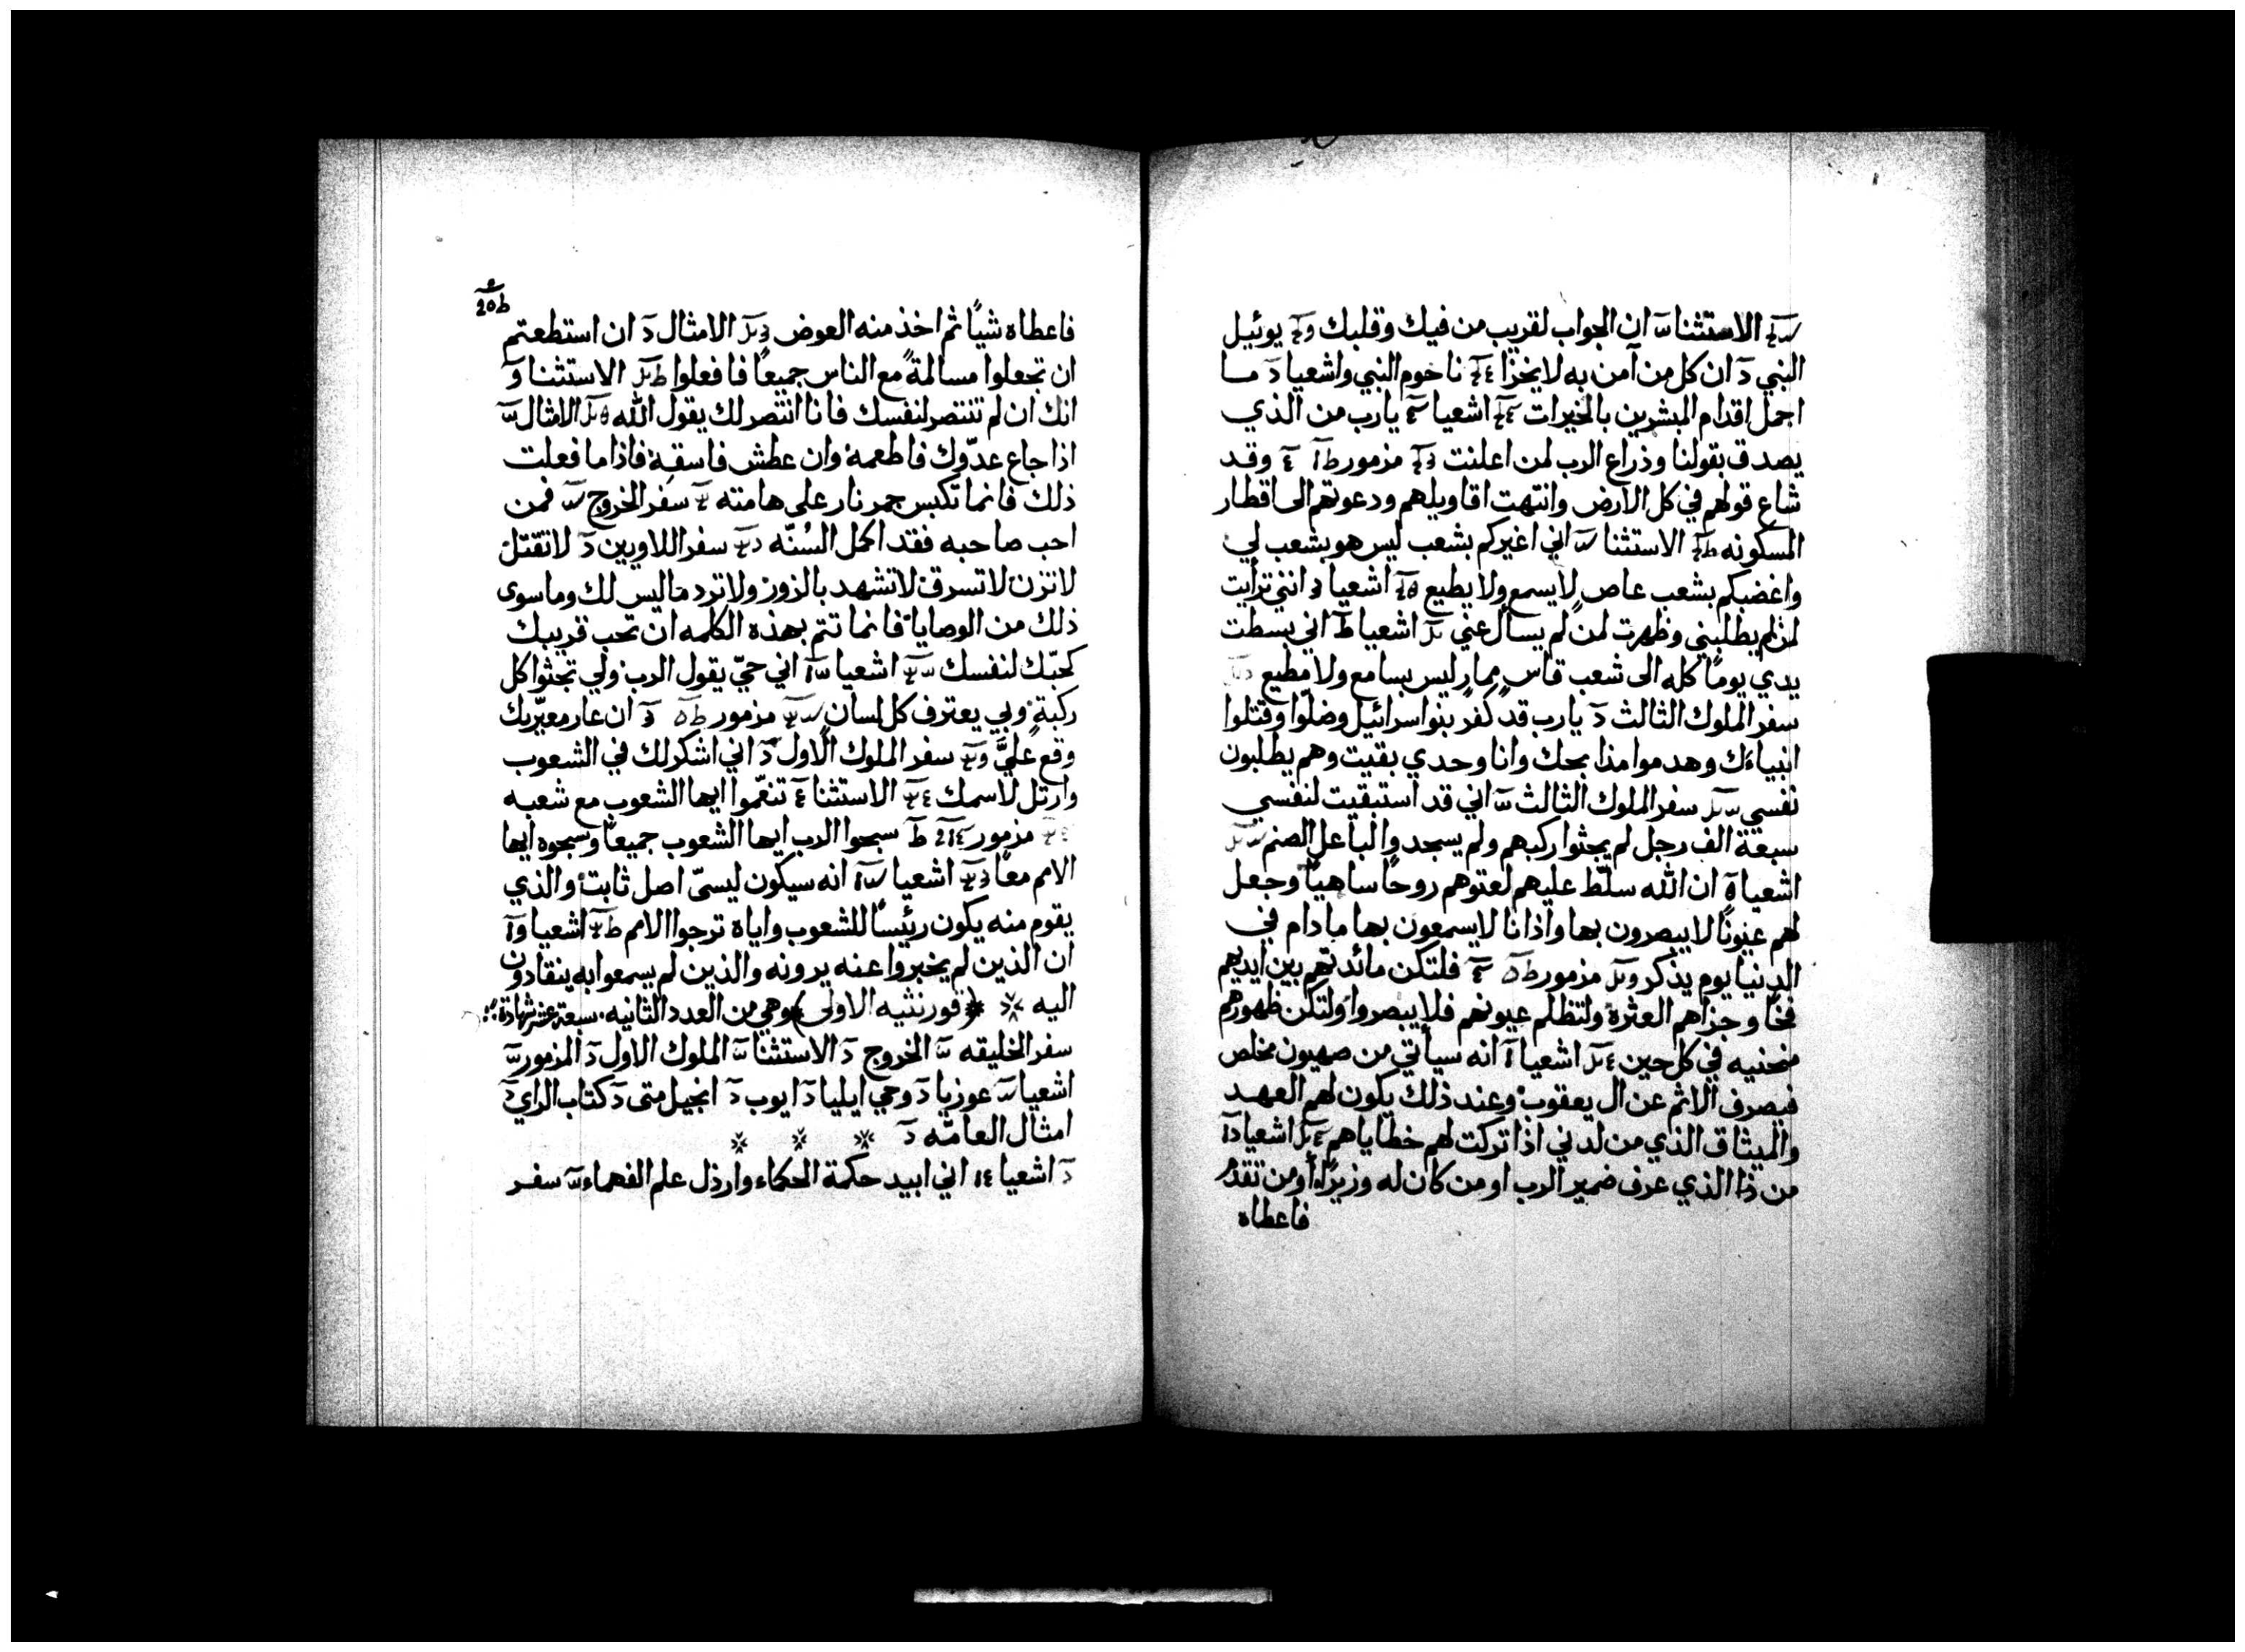 الاستثنا ان الجواب لقريب من فيك وقلبك يوئيل
النبي ان كل من آمن به لا يخزا ناحوم النبي واشعيا ما
اجمل اقدام المبشرين بالخيرات اشعيا يارب من الذي
يصدق بقولنا وذراع الرب لمن اعلنت مزمور وقد
شاع قولهم في كل الارض وانتهت اقاويلهم ودعوتهم الى اقطار
المسكونه الاستثنا اني اغيركم بشعب ليس هو بشعب لي
واغضبكم بشعب عاص لا يسمع ولا يطيع اشعيا انني ترايت
لمن لم يطلبني وظهرت لمن لم يسأل عني اشعيا اني بسطت
يدي يومًا كله الى شعب قاس ممار ليس بسامع ولا مطيع
سفر الملوك الثالث يارب قد كفر بنوا سرائيل وضلّوا وقتلوا
انبياءك وهدموا مذابحك وانا وحدي بقيت وهم يطلبون
نفسي سفر الملوك الثالث اني قد استبقيت لنفسي
سبعة الف رجل لم يجثوا ركبهم ولم يسجدوا لباعل الصنم
اشعيا ان الله سلّط عليهم لعتوهم روحًا ساهيًا وجعل
لهم عيونًا لا يبصرون بها واذانا لا يسمعون بها مادام في
الدنيا يوم يذكر مزمور فلتكن مائدتهم بين ايديهم
فخًا وجزاهم العثرة ولتظلم عيونهم فلا يبصروا ولتكن ظهورهم
منحنيه في كل حين اشعيا انه سيأتي من صهيون مخلص
فيصرف الاثم عن ال يعقوب وعند ذلك يكون لهم العهد
والميثاق الذي من لدني اذا تركت لهم خطاياهم اشعيا
من ذا الذي عرف ضمير الرب او من كان له وزيرًا أو من تقدم
فاعطاه
فاعطاه شيًا ثم اخذ منه العوض الامثال ان استطعتم
ان تجعلوا مسالمةً مع الناس جميعًا فافعلوا الاستثنا
انك ان لم تنتصر لنفسك فانا انتصر لك يقول الله الامثال
اذا جاع عدّوك فاطعمه وان عطش فاسقه فاذا ما فعلت
ذلك فانما تكبس جمر نار على هامته سفر الخروج فمن
احب صاحبه فقد اكمل السُنّه سفر اللاويين لا تقتل
لا تزن لا تسرق لا تشهد بالزور ولا ترد ما ليس لك وما سوى
ذلك من الوصايا فانما تتم بهذه الكلمه ان تحب قريبك
كحبّك لنفسك اشعيا اني حيّ يقول الرب ولي تجثوا كل
ركبة وبي يعترف كل لسان مزمور ان عار معيّريك
وقع عليَّ سفر الملوك الاول اني اشكر لك في الشعوب
وارتل لاسمك الاستثنا تنعّموا ايها الشعوب مع شعبه
مزمور سبحوا الرب ايها الشعوب جميعًا وسبحوه ايها
الامم معًا اشعيا انه سيكون ليسىّ اصل ثابت والذي
يقوم منه يكون رئيسًا للشعوب واياه ترجوا الامم اشعيا
ان الذين لم يخبروا عنه يرونه والذين لم يسمعوا به ينقادون
اليه (قورنثيه الاولى) وهي من العدد الثانيه سبعة عشر شهادة
سفر الخليقه الخروج الاستثنا الملوك الاول المزمور
اشعيا عوزيا وحي ايليا ايوب انجيل متى كتاب الراي
امثال العامّه
اشعيا اني ابيد حكمة الحكماء وارذل علم الفهماء سفر